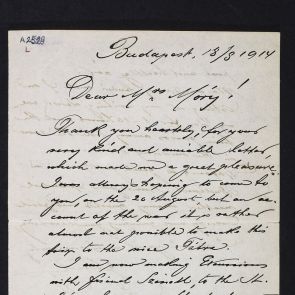 A 2589
L
Budapest, 13/8 1914
Dear Mrs Móry!
Thank you heartily, for your
very kind and amiable letter
which made me a great pleasure
I was always hoping to come to
you, on the 20 August but on ac-
count of the war it is rather
almost not possible to make this
trip to the nice Tátra.
I am now making Excursions
with friend Szinell to the St.